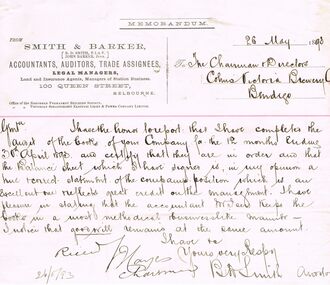 MEMORANDUM.
FROM
SMITH & BARKER,
ACCOUNTANTS, AUDITORS, TRADE ASSIGNEES,
LEGAL MANAGERS,
Land and Insurance Agents, Managers of Station Business.
100 QUEEN STREET,
MELBOURNE.
26 May 1893
To The Chairman & Directors
Cohns Victoria Brewery Co
Bendigo
I have the honor to report that I have completed the
audit of the books of your Company for the 12 months ending
30 April 1893 and certify that they are in order and that
the Balance Sheet which I have signed is in my opinion
a true & correct statement of the company's position which is an
excellent one & reflects great credit on the management. I have
pleasure in stating that the accountant keeps the
books in a most methodical businesslike manner
I notice that goodwill remains at the same amount.
I have to
Yours very
Smith
Hayes
Chairman
26/5/93